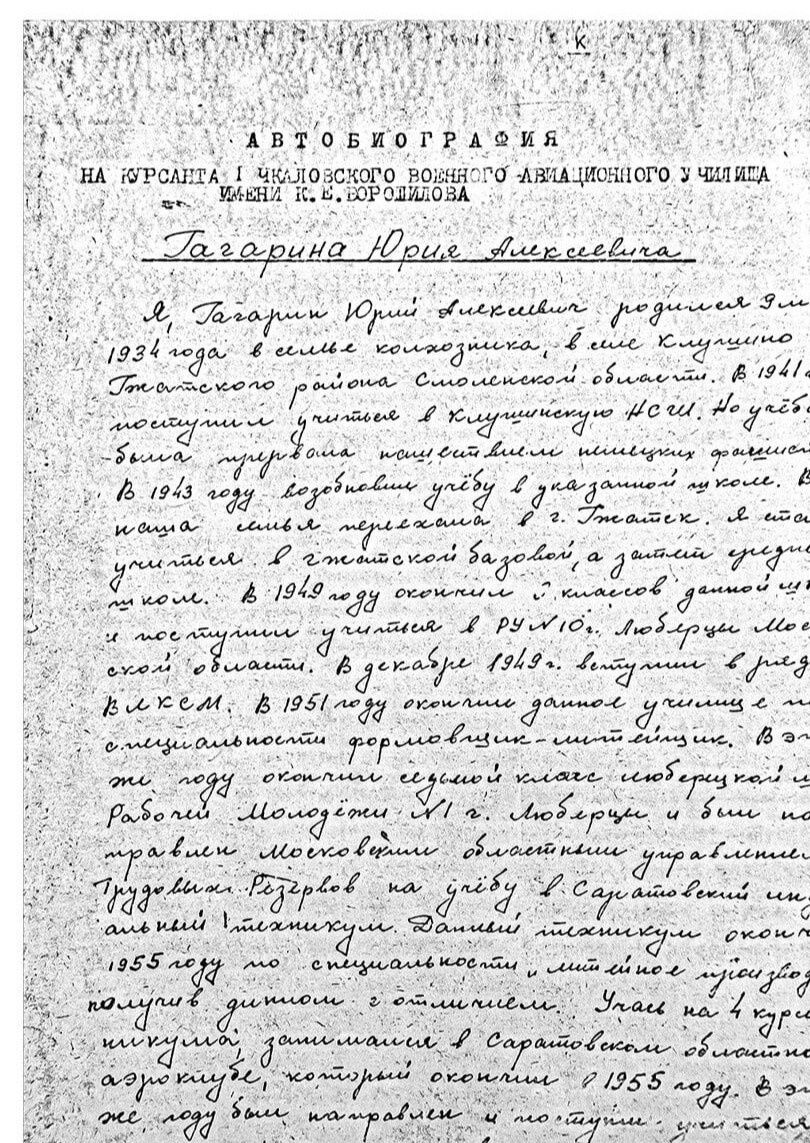 К
АВТОБИОГРАФИЯ
НА КУРСАНТА I ЧКАЛОВСКОГО ВОЕННОГО АВИАЦИОННОГО УЧИЛИЩА
ИМЕНИ К.Е.ВОРОШИЛОВА
Гагарина Юрия Алексеевича
Я, Гагарин Юрий Алексеевич родился 9 м
1934 года в семье колхозника, в селе Клушино
Гжатского района Смоленской области. В 1941 г
поступил учиться в Клушинскую НСШ. Но учёб
была прервана нашествием немецких фашис
В 1943 году возобновил учёбу в указанной школе. В
наша семья переехала в г. Гжатск. Я ста
учиться в гжатской базовой, а затем средне
школе. В 1949 году окончил классов данной шк
и поступил учиться в РУ №10 г. Люберцы Мос
ской области. В декабре 1949 г. вступил в ряд
ВЛКСМ. В 1951 году окончил данное училище п
специальности формовщик-литейщик. В эт
же году окончил седьмой класс люберецкой ш
Рабочей Молодёжи №1 г. Люберцы и был на
правлен Московским областным управление
Трудовых Резервов на учёбу в Саратовский инду
альный техникум. Данный техникум оконч
1955 году по специальности „литейное производ
получив диплом с отличием. Учась на 4 курсе
никума, занимался в Саратовском областно
аэроклубе, который окончил в 1955 году. В эт
же году был направлен и поступил учиться